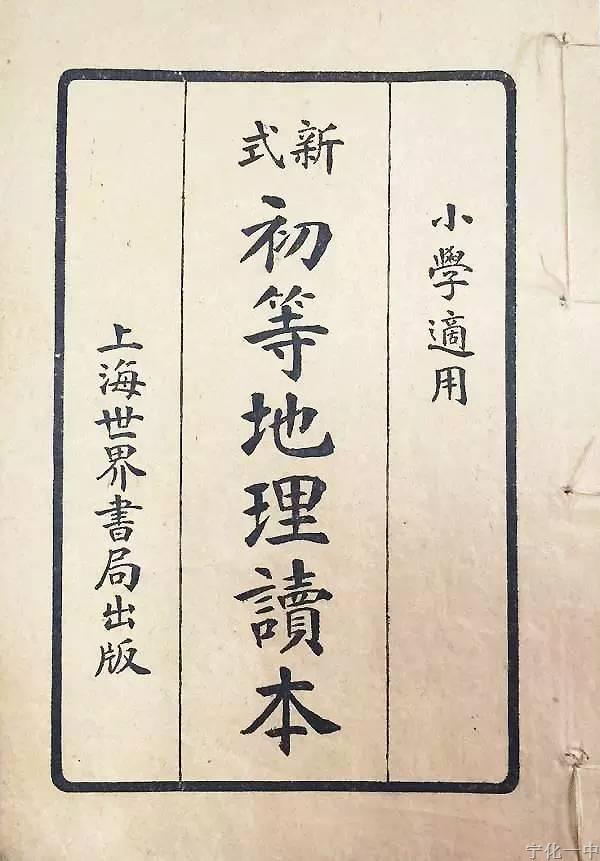 小學適用
新式
初等地理讀本
上海世界書局出版
宁化一中